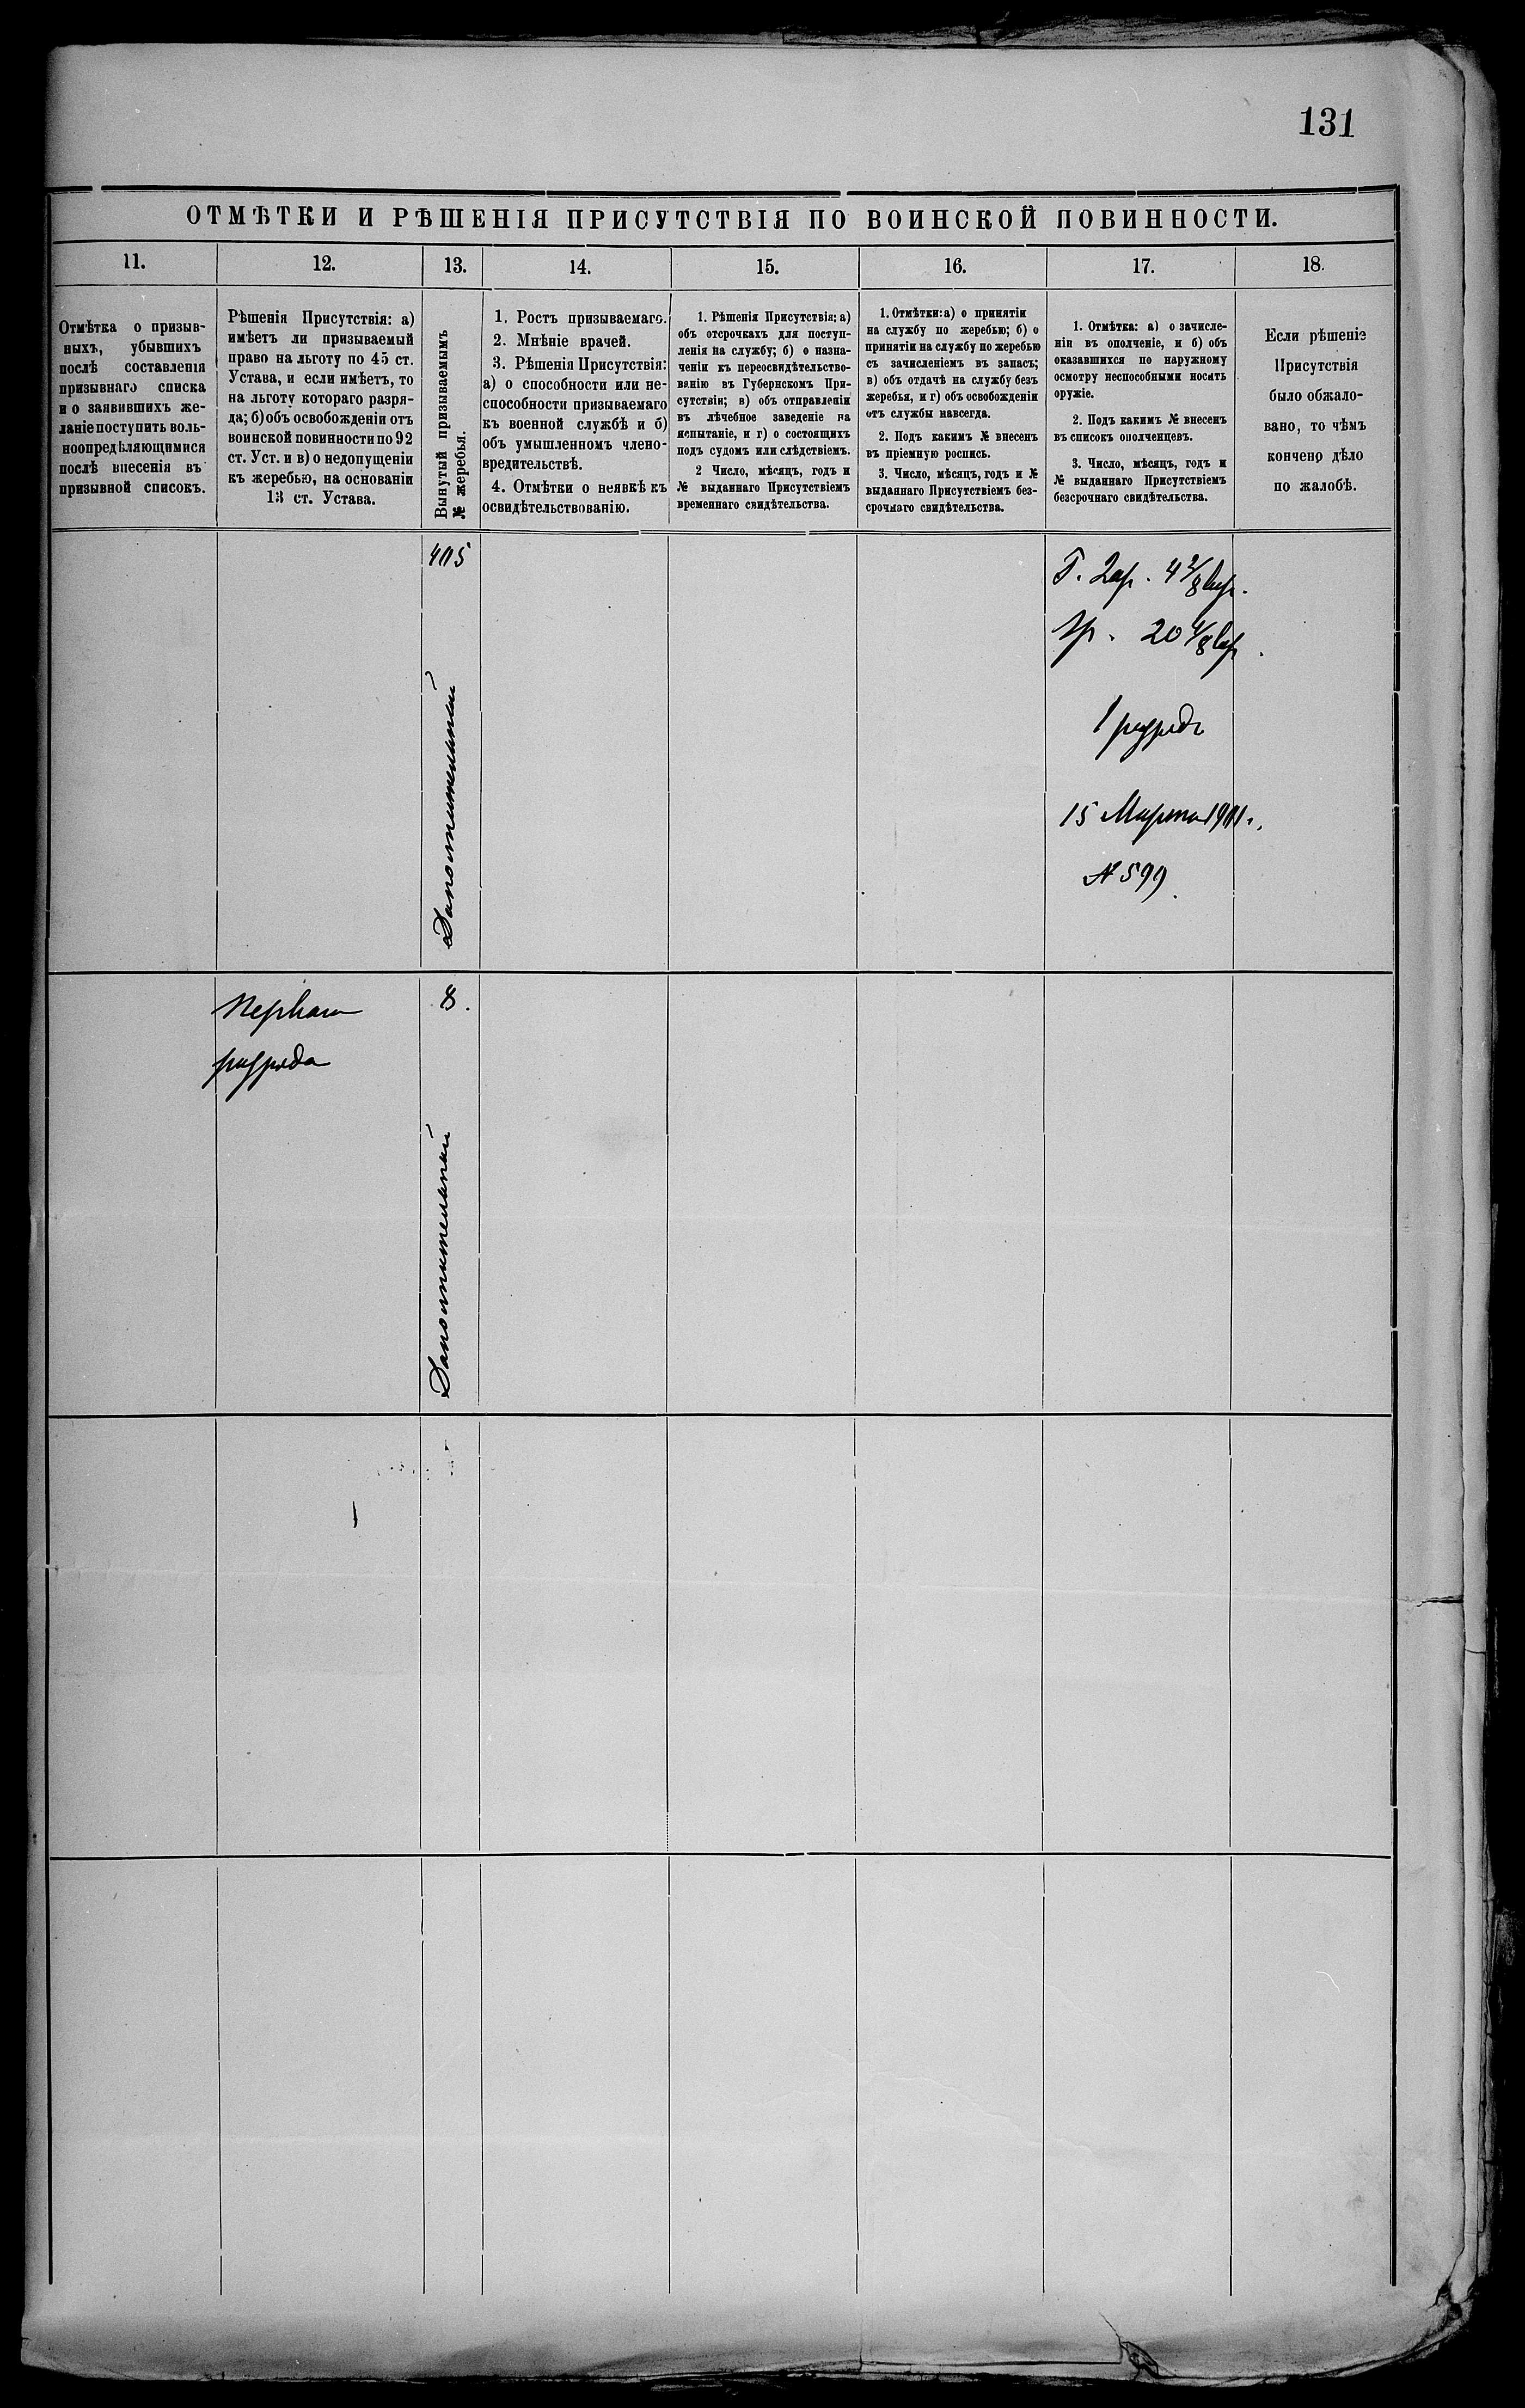 131
ОТМѢТКИ И РѢШЕНІЯ ПРИСУТСТВІЯ ПО ВОИНСКОЙ ПОВИННОСТИ.
11.
12.
13.
14.
15.
16.
17.
18.
Отмѣтка о призыв-
ныхъ, убывшихъ
послѣ составленія
призывнаго списка
и о заявившихъ же-
ланіе поступить воль-
ноопредѣляющимися
послѣ внесенія въ
призывной списокъ.
Рѣшенія Присутствія: а)
имѣетъ ли призываемый
право на льготу по 45 ст.
Устава, и если имѣетъ, то
на льготу котораго разря-
да; б) объ освобожденіи отъ
воинской повинности по 92
ст. Уст. и в) о недопущеніи
къ жеребью, на основаніи
13 ст. Устава.
Вынутый призываемымъ
№ жеребья.
1. Ростъ призываемаго.
2. Мнѣніе врачей.
3. Рѣшенія Присутствія:
а) о способности или не-
способности призываемаго
къ военной службѣ и б)
объ умышленномъ члено-
вредительствѣ.
4. Отмѣтки о неявкѣ къ
освидѣтельствованію.
1. Рѣшенія Присутствія: а)
объ отсрочкахъ для поступ-
ленія на службу; б) о назна-
ченіи къ переосвидѣтельство-
ванію въ Губернскомъ При-
сутствіи; в) объ отправленіи
въ лѣчебное заведеніе на
испытаніе, и г) о состоящихъ
подъ судомъ или слѣдствіемъ.
2 Число, мѣсяцъ, годъ и
№ выданнаго Присутствіемъ
временнаго свидѣтельства.
1. Отмѣтки: а) о принятіи
на службу по жеребью; б) о
принятіи на службу по жеребью
съ зачисленіемъ въ запасъ;
в) объ отдачѣ на службу безъ
жеребья, и г) объ освобожденіи
отъ службы навсегда.
2. Подъ какимъ № внесенъ
въ пріемную роспись.
3. Число, мѣсяцъ, годъ и №
выданнаго Присутствіемъ без-
срочнаго свидѣтельства.
1. Отмѣтка: а) о зачисле-
ніи въ ополченіе, и б) объ
оказавшихся по наружному
осмотру неспособными носить
оружіе.
2. Подъ какимъ № внесенъ
въ списокъ ополченцевъ.
3. Число, мѣсяцъ, годъ и
№ выданнаго Присутствіемъ
безсрочнаго свидѣтельства.
Если рѣшеніе
Присутствія
было обжало-
вано, то чѣмъ
кончено дѣло
по жалобѣ.
405
Дополнительный
Р. 2 ар. 4 2/8 вер.
гр. 20 4/8 вер.
1 разрядъ
15 Марта 1901 г.
№ 599
Перваго
разряда
8.
Дополнительный